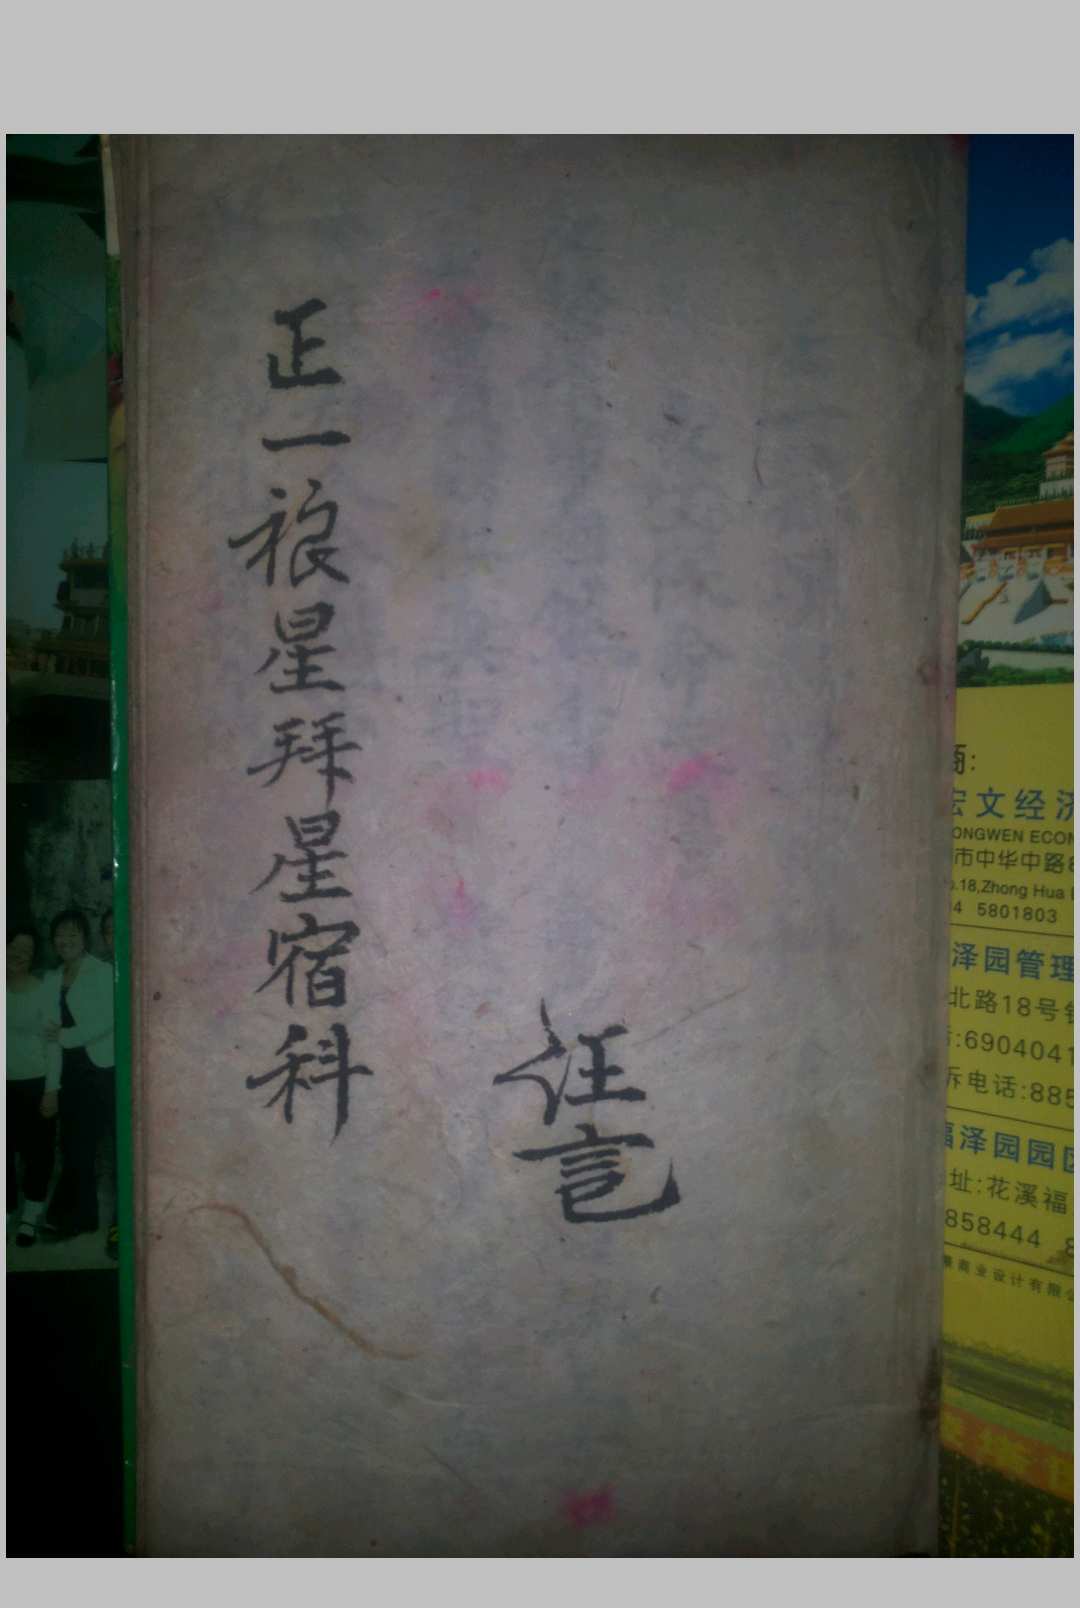 正一䄚星拜星宿科
任言
商:
宏文经济
ONGWEN ECON
市中华中路8
o.18,Zhong Hua
4 5801803
泽园管理
北路18号
:6904041
诉电话:885
福泽园园区
址:花溪福
858444 8
商业设计有限公